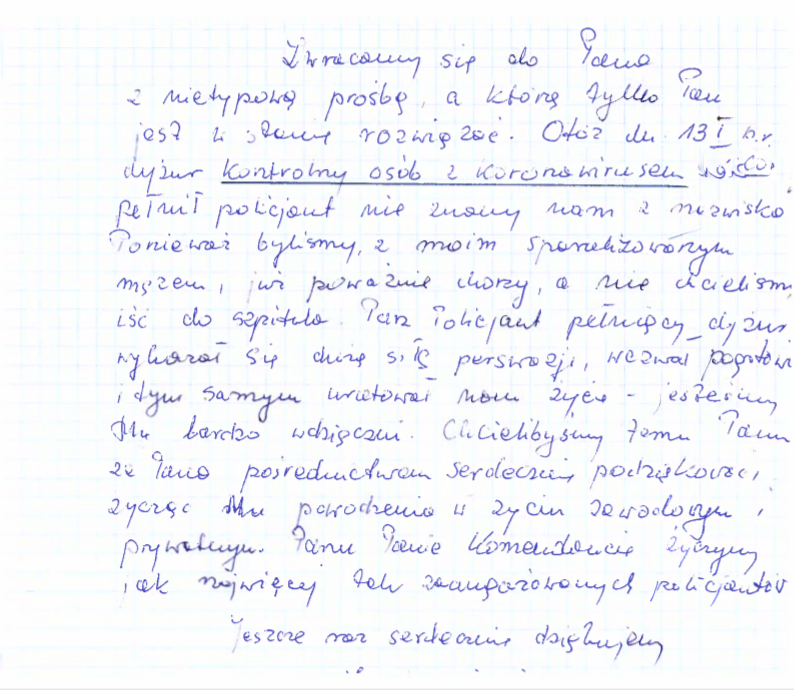 Zwracamy się do Pana
z nietypową prośbą, a którą tylko Pan
jest w stanie rozwiązać. Otóż dn. 13 I b.r.
dyżur kontrolny osób z koronawirusem
pełnił policjant nie znany nam z nazwiska
Ponieważ byliśmy, z moim sparaliżowanym
mężem, już poważnie chorzy, a nie chcieliśmy
iść do szpitala. Pan Policjant pełniący dyżur
wykazał się dużą siłą perswazji, wezwał pogotowi
i tym samym uratował nam życie - jesteśmy
Mu bardzo wdzięczni. Chcielibyśmy temu Panu
za Pana pośrednictwem serdecznie podziękować,
życząc Mu powodzenia w życiu zawodowym i
prywatnym. Panu Panie Komendancie życzymy
jak najwięcej tak zaangażowanych policjantów
Jeszcze raz serdecznie dziękujemy